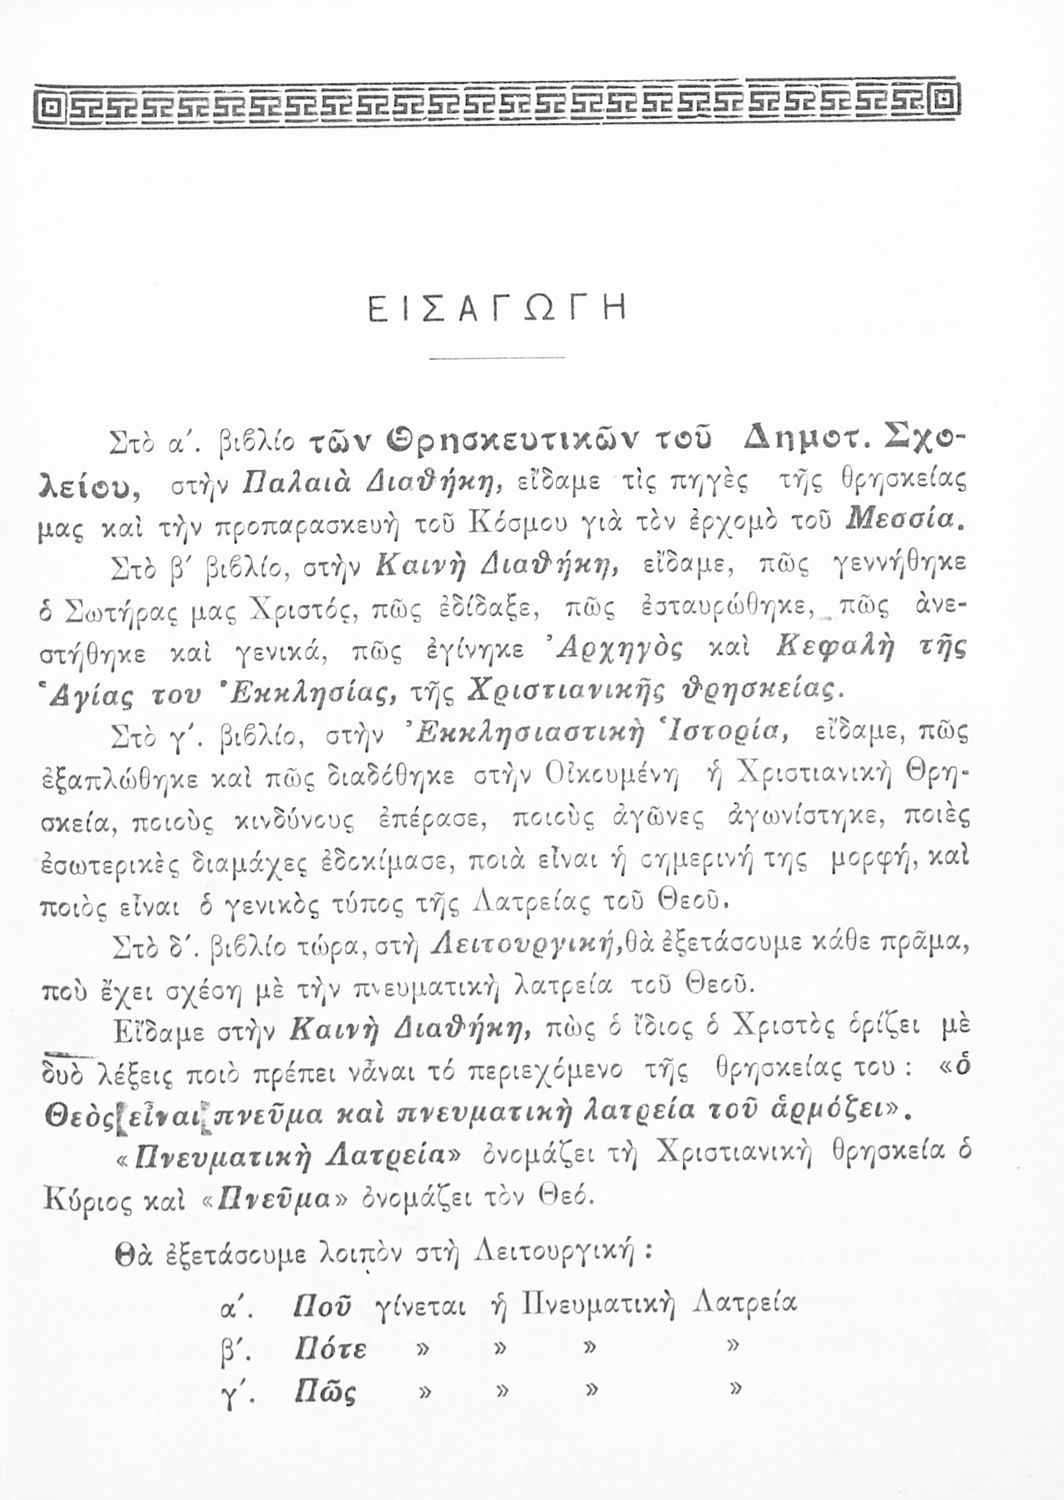 ΕΙΣΑΓΩΓΗ
Στὸ α΄. βιβλίο τῶν Θρησκευτικῶν τοῦ Δημοτ. Σχο-
λείου, στὴν Παλαιὰ Διαθήκη, εἴδαμε τὶς πηγὲς τῆς θρησκείας
μας καὶ τὴν προπαρασκευὴ τοῦ Κόσμου γιὰ τὸν ἐρχομὸ τοῦ Μεσσία.
Στὸ β΄ βιβλίο, στὴν Καινὴ Διαθήκη, εἴδαμε, πῶς γεννήθηκε
ὁ Σωτήρας μας Χριστός, πῶς ἐδίδαξε, πῶς ἐσταυρώθηκε, πῶς ἀνε-
στήθηκε καὶ γενικά, πῶς ἐγίνηκε Ἀρχηγὸς καὶ Κεφαλὴ τῆς
Ἁγίας του Ἐκκλησίας, τῆς Χριστιανικῆς θρησκείας.
Στὸ γ΄. βιβλίο, στὴν Ἐκκλησιαστικὴ Ἱστορία, εἴδαμε, πῶς
ἐξαπλώθηκε καὶ πῶς διαδόθηκε στὴν Οἰκουμένη ἡ Χριστιανικὴ Θρη-
σκεία, ποιοὺς κινδύνους ἐπέρασε, ποιοὺς ἀγῶνες ἀγωνίστηκε, ποιὲς
ἐσωτερικὲς διαμάχες ἐδοκίμασε, ποιὰ εἶναι ἡ σημερινή της μορφή, καὶ
ποιὸς εἶναι ὁ γενικὸς τύπος τῆς Λατρείας τοῦ Θεοῦ.
Στὸ δ΄. βιβλίο τώρα, στὴ Λειτουργική, θὰ ἐξετάσουμε κάθε πρᾶμα,
ποὺ ἔχει σχέση μὲ τὴν πνευματικὴ λατρεία τοῦ Θεοῦ.
Εἴδαμε στὴν Καινὴ Διαθήκη, πὼς ὁ ἴδιος ὁ Χριστὸς ὁρίζει μὲ
δυὸ λέξεις ποιὸ πρέπει νἆναι τό περιεχόμενο τῆς θρησκείας του : «ὁ
Θεὸς εἶναι πνεῦμα καὶ πνευματικὴ λατρεία τοῦ ἁρμόζει».
«Πνευματικὴ Λατρεία» ὀνομάζει τὴ Χριστιανικὴ θρησκεία ὁ
Κύριος καὶ «Πνεῦμα» ὀνομάζει τὸν Θεό.
Θὰ ἐξετάσουμε λοιπὸν στὴ Λειτουργική :
α΄. Ποῦ γίνεται ἡ Πνευματικὴ Λατρεία
β΄. Πότε » » » »
γ΄. Πῶς » » » »